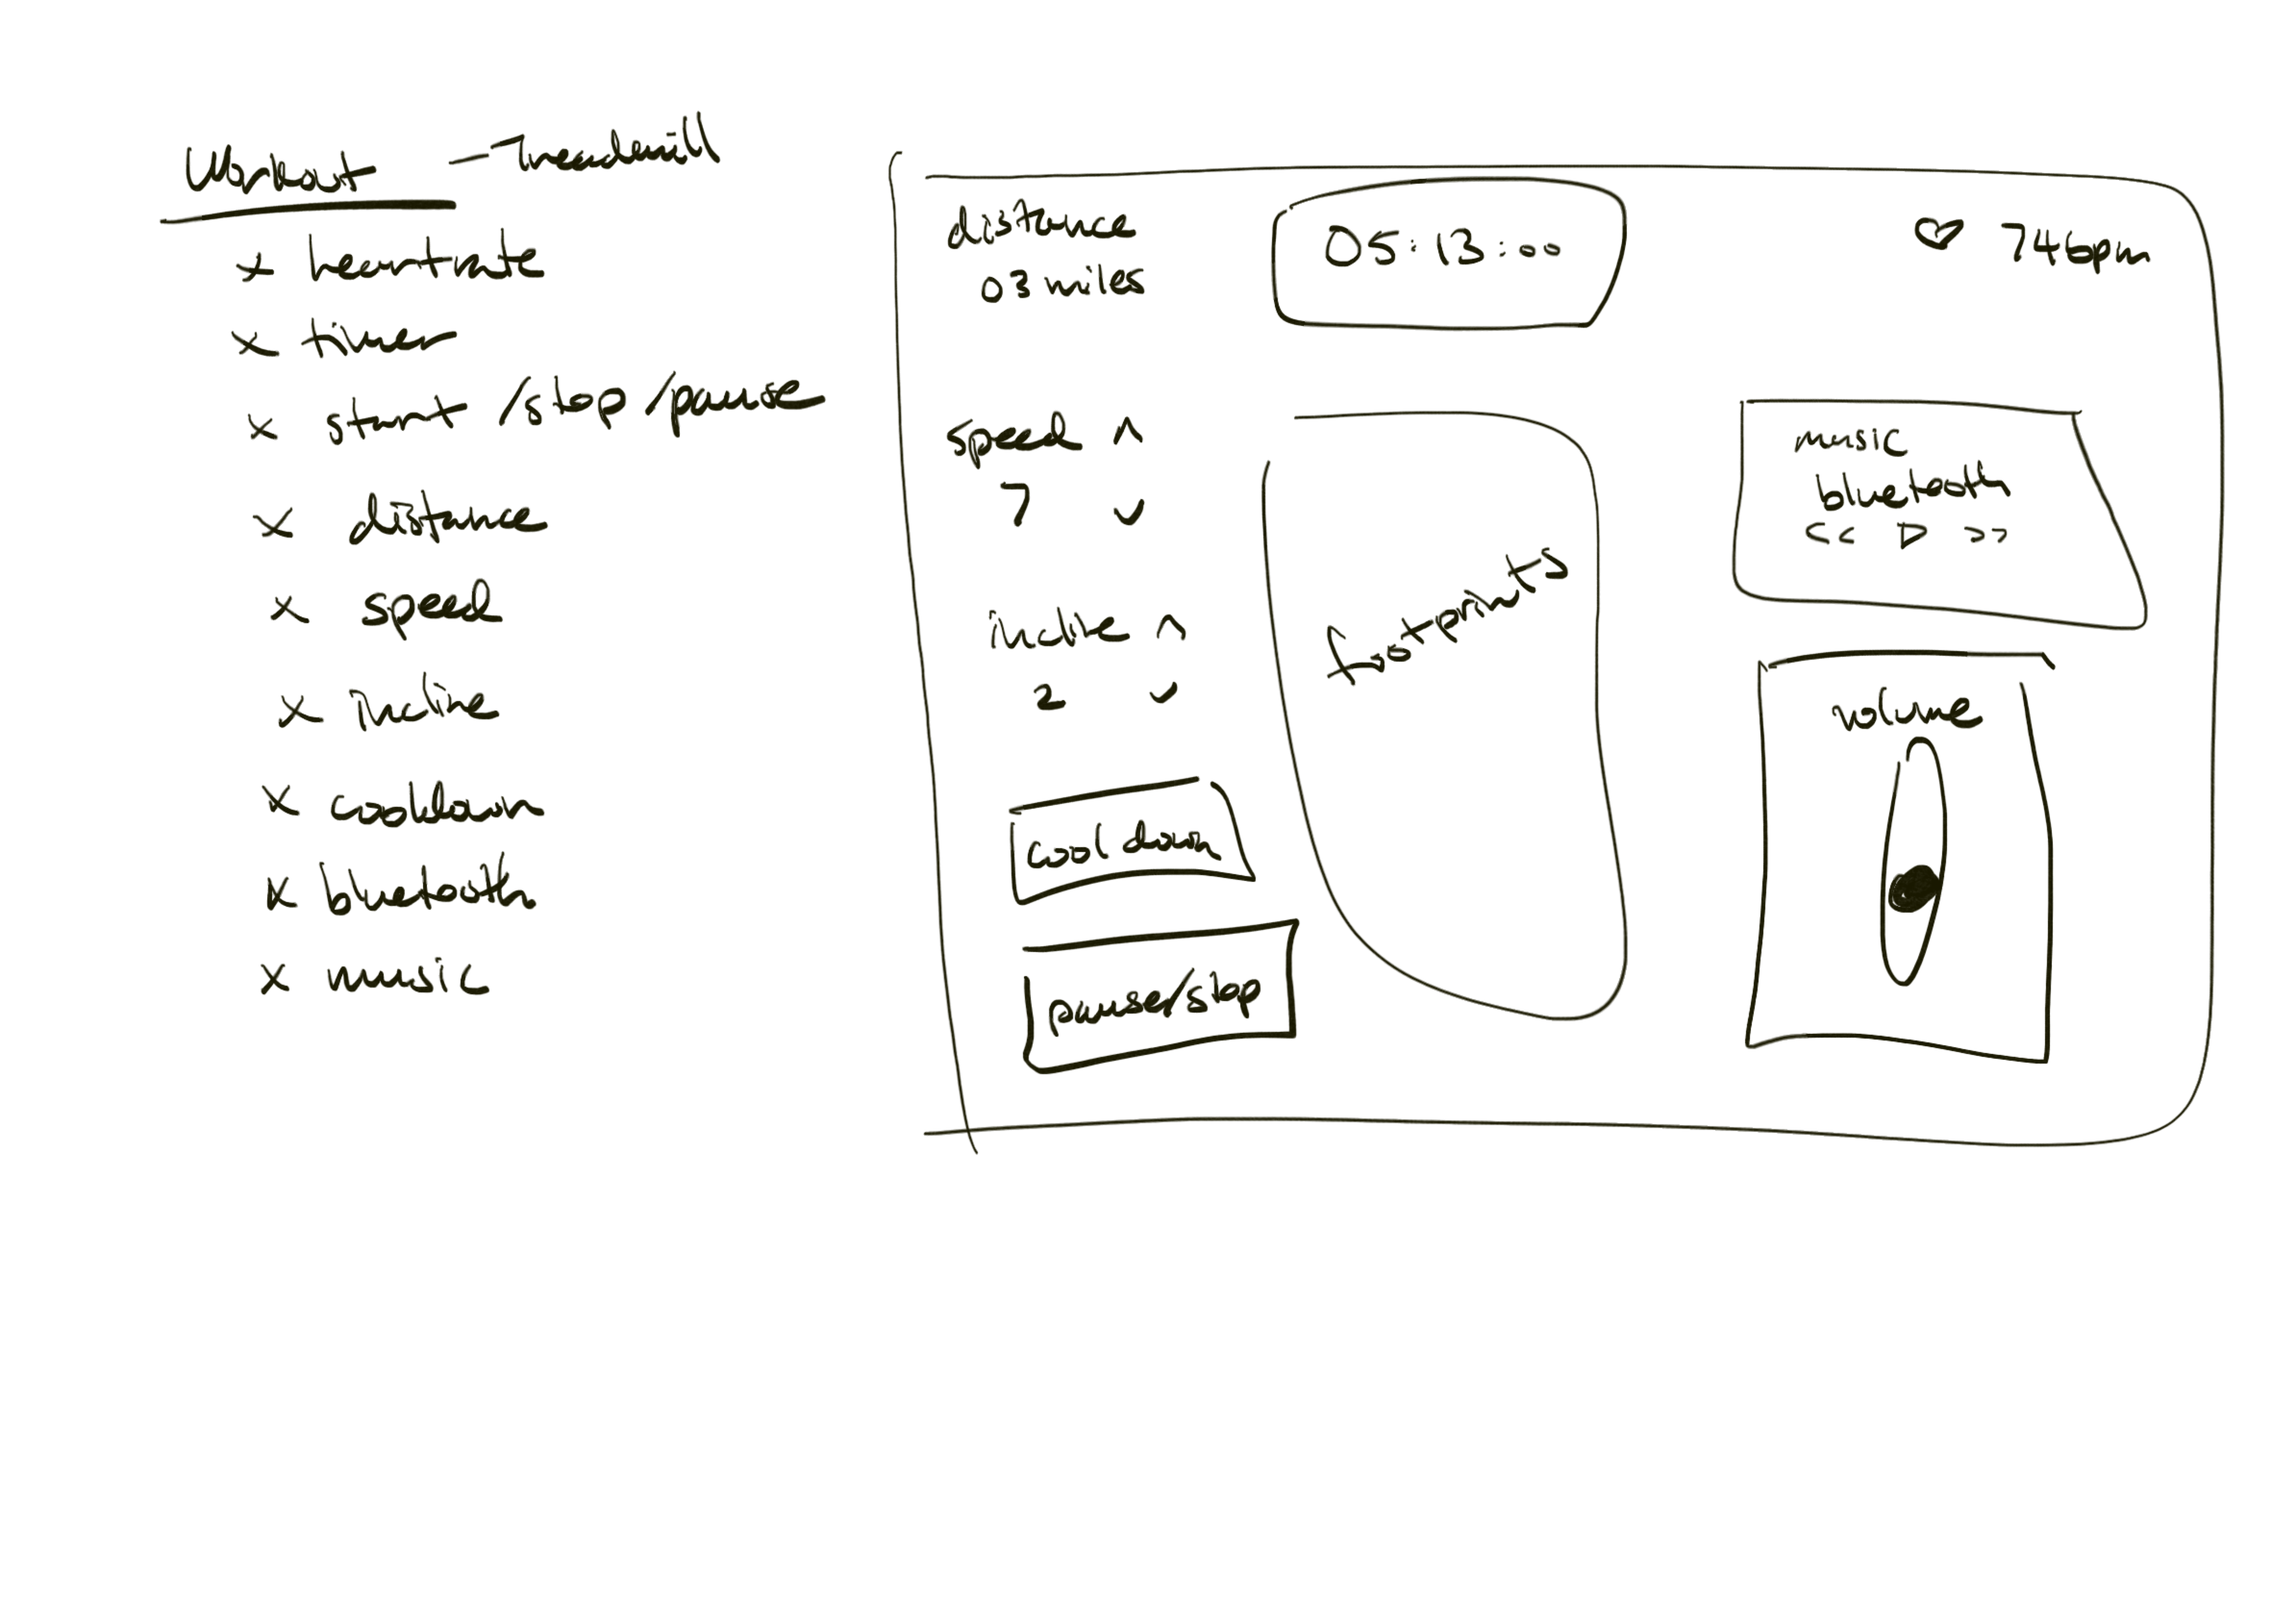 Workout - Treadmill
x heartrate
x timer
x start /stop /pause
x distance
x speed
x incline
x cooldown
x bluetooth
x music
distance
03 miles
05:13:00
♡ 74bpm
speed ^
7 v
incline ^
2 v
cool down
pause/stop
footprints
music
bluetooth
<< ▷ >>
volume